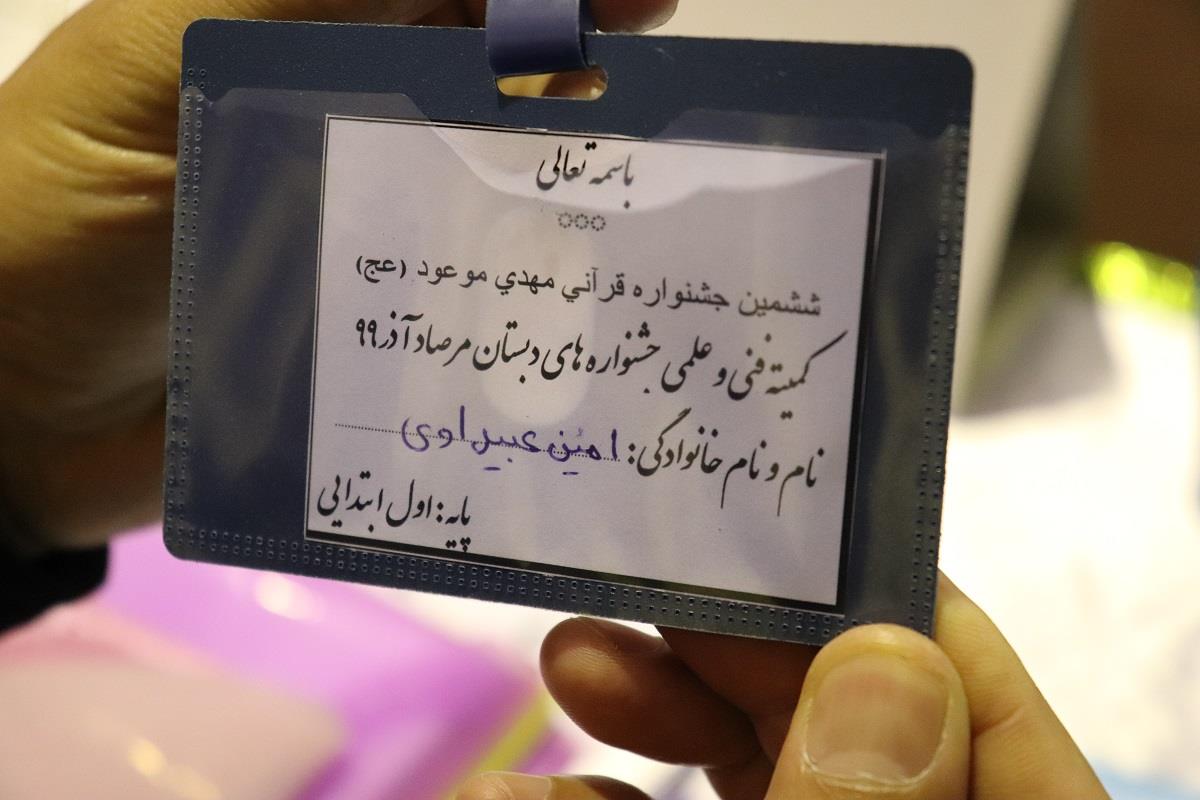 باسمه تعالی
ششمین جشنواره قرآني مهدي موعود (عج)
کمیته فنی و علمی جشنواره های دبستان مرصاد آذر ۹۹
نام و نام خانوادگی: امین عبیداوی
پایه: اول ابتدایی